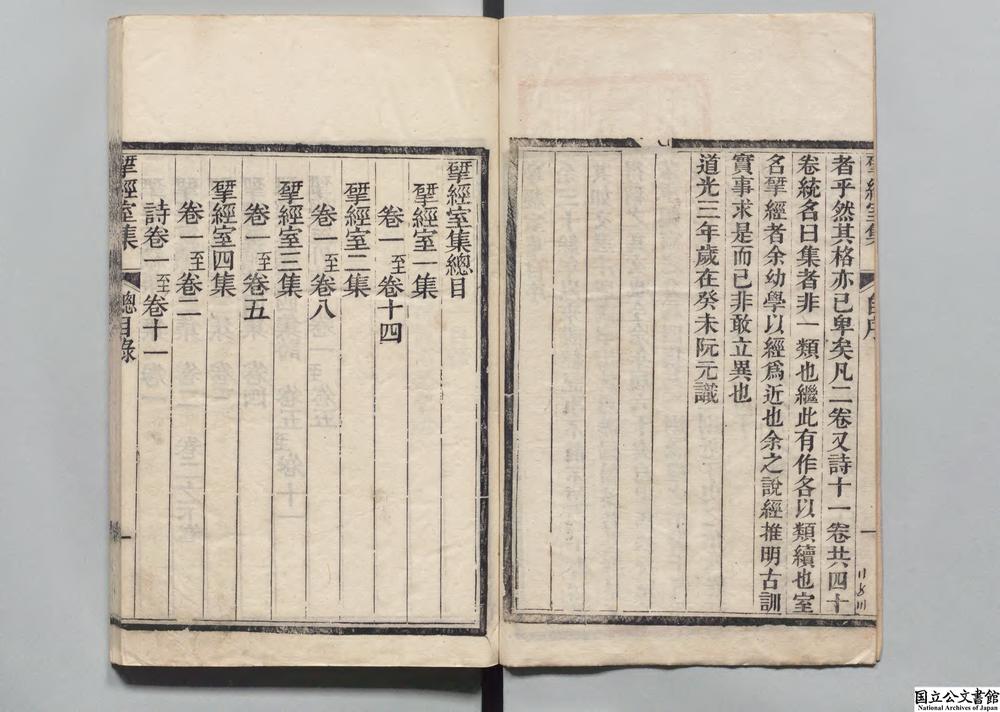 揅經室集 自序 一
者乎然其格亦已卑矣凡二卷又詩十一卷共四十
卷統名曰集者非一類也繼此有作各以類續也室
名揅經者余幼學以經爲近也余之說經推明古訓
實事求是而已非敢立異也
道光三年歲在癸未阮元識
揅經室集總目
揅經室一集
卷一至卷十四
揅經室二集
卷一至卷八
揅經室三集
卷一至卷五
揅經室四集
卷一至卷二
詩卷一至卷十一
揅經室集 總目錄 一
国立公文書館
National Archives of Japan